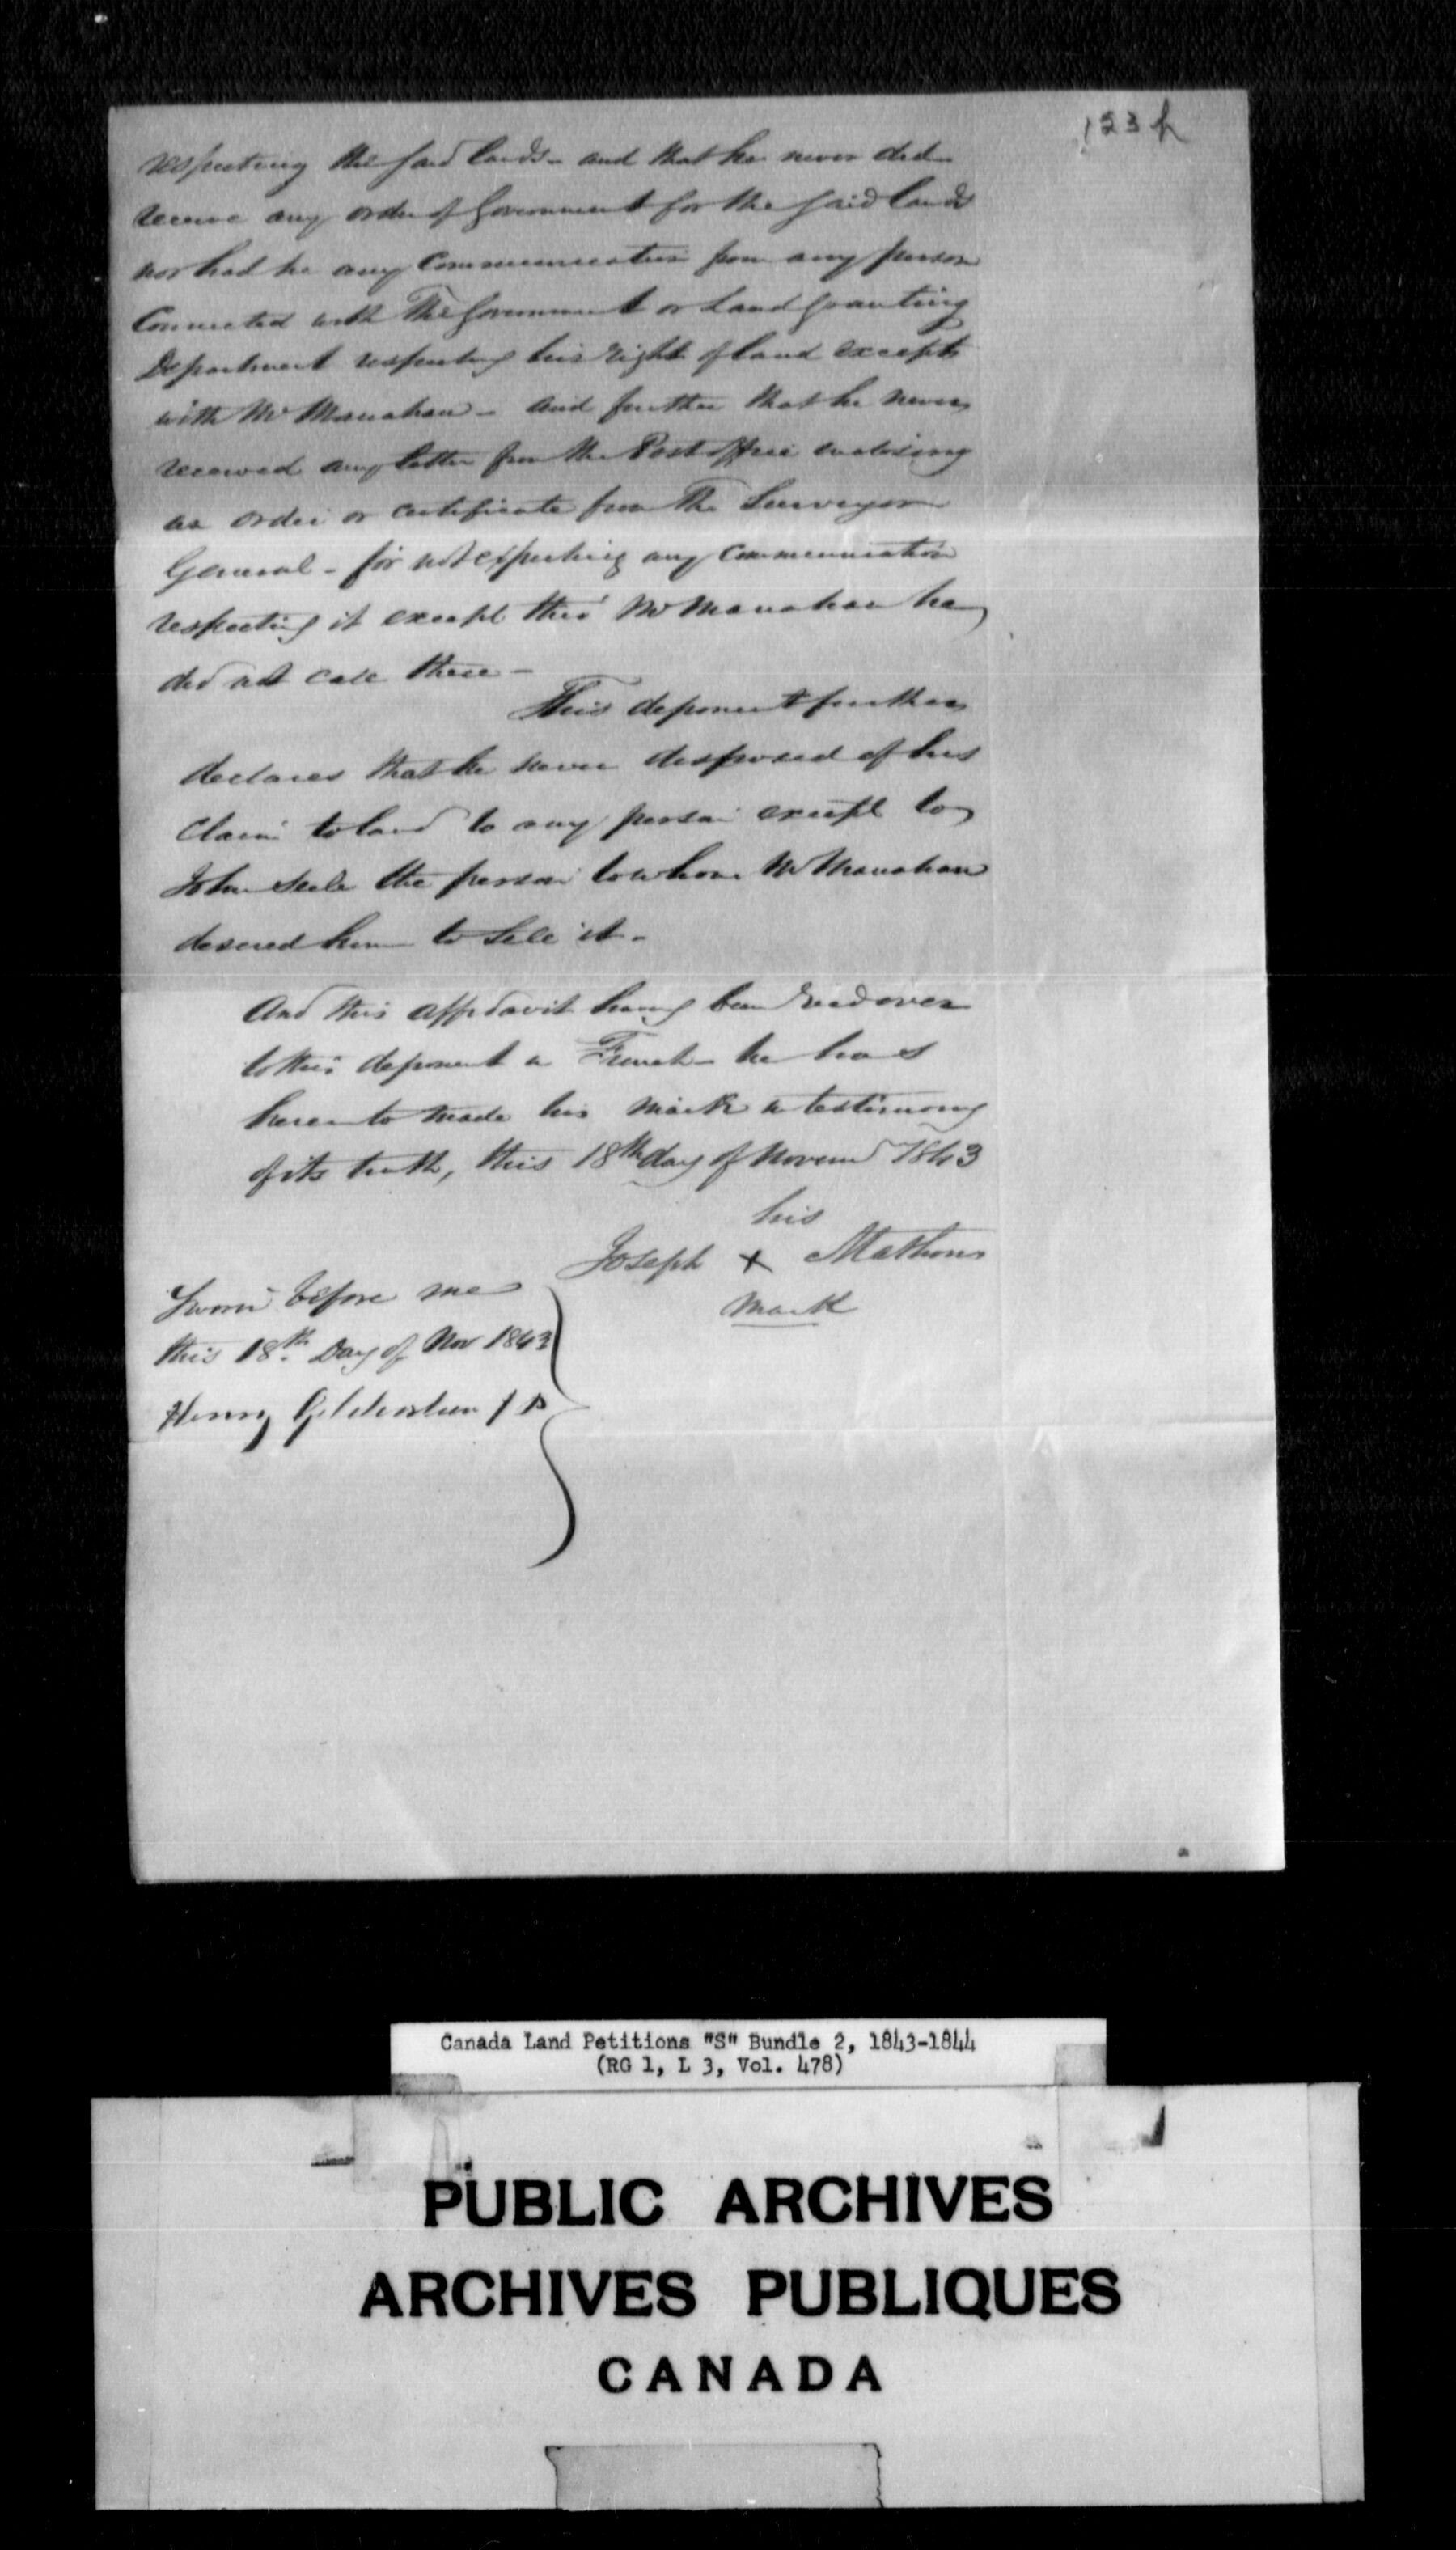 123 h
respecting the said lands - and that he never did
receive any order of Government for the said lands
nor had he any Communication from any person
Connected with The Government or Land Granting
Department respecting his right of land except
with Mr Manahan - and further that he never
received any letter from the Post office enclosing
an order or certificate from The Surveyor
General - for not expecting any communication
respecting it except thro' Mr Manahan he
did not call there -
This deponent further
declares that he never disposed of his
Claim to land to any person except to
John the person to whom Mr Manahan
desired him to sell it -
And this affidavit having been read over
to this deponent in French - he has
hereunto made his mark in testimony
of its truth, this 18th day of 1843
his
Joseph x
mark
Sworn before me
this 18th Day of Nov 1843
Henry
Canada Land Petitions "S" Bundle 2, 1843-1844
(RG 1, L 3, Vol. 478)
PUBLIC ARCHIVES
ARCHIVES PUBLIQUES
CANADA